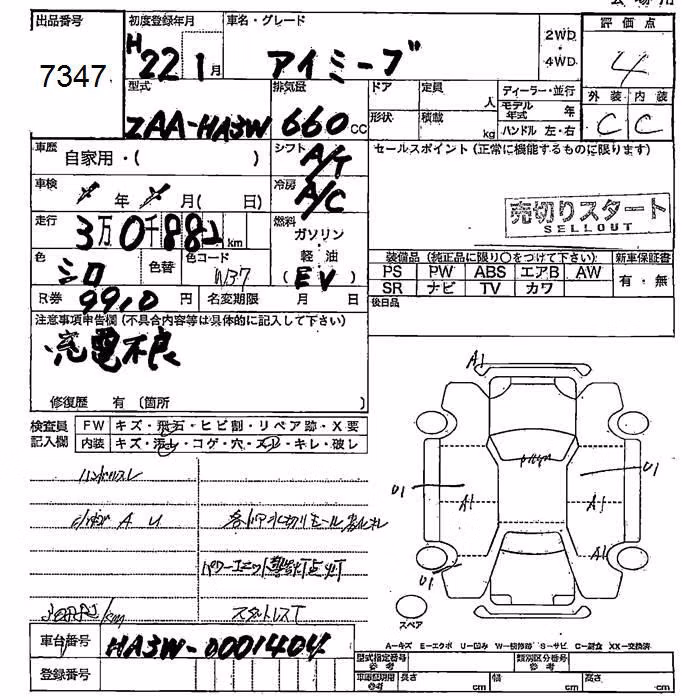 出品番号 初度登録年月 車名・グレード 評価点
7347 H22 1月 アイミーブ 2WD・4WD 4
型式 排気量 ドア 定員 人 ディーラー・並行 外装 内装
ZAA-HA3W 660cc 形状 積載 kg モデル年式 年 C C
ハンドル 左・右
車歴 自家用・( ) シフト A/T セールスポイント (正常に機能するものに限ります)
車検 年 月( 日) 冷房 A/C
売切りスタート
SELLOUT
走行 3万0千882km 燃料 ガソリン・軽油
色 シロ 色替 色コード W37 (EV) 装備品 (純正品に限り○をつけて下さい) 新車保証書
PS PW ABS エアB AW 有・無
SR ナビ TV カワ
R券 9910円 名変期限 月 日 後日品
注意事項申告欄 (不具合内容等は具体的に記入して下さい)
充電不良
修復歴 有 (箇所 )
検査員記入欄 FW キズ・飛石・ヒビ割・リペア跡・X要
内装 キズ・汚レ・コゲ・穴・スレ・キレ・破レ
A1
ハンドルスレ
U1 A1 A1 U1
A U
A1
パワーユニット警告灯点灯
U1
スタットレスT
スペア
車台番号 HA3W-0001404
A-キズ E-エクボ U-凹み W-補修跡 S-サビ C-腐食 XX-交換済
登録番号
型式指定番号 参考 類別区分番号 参考
長さ cm 幅 cm 高さ cm